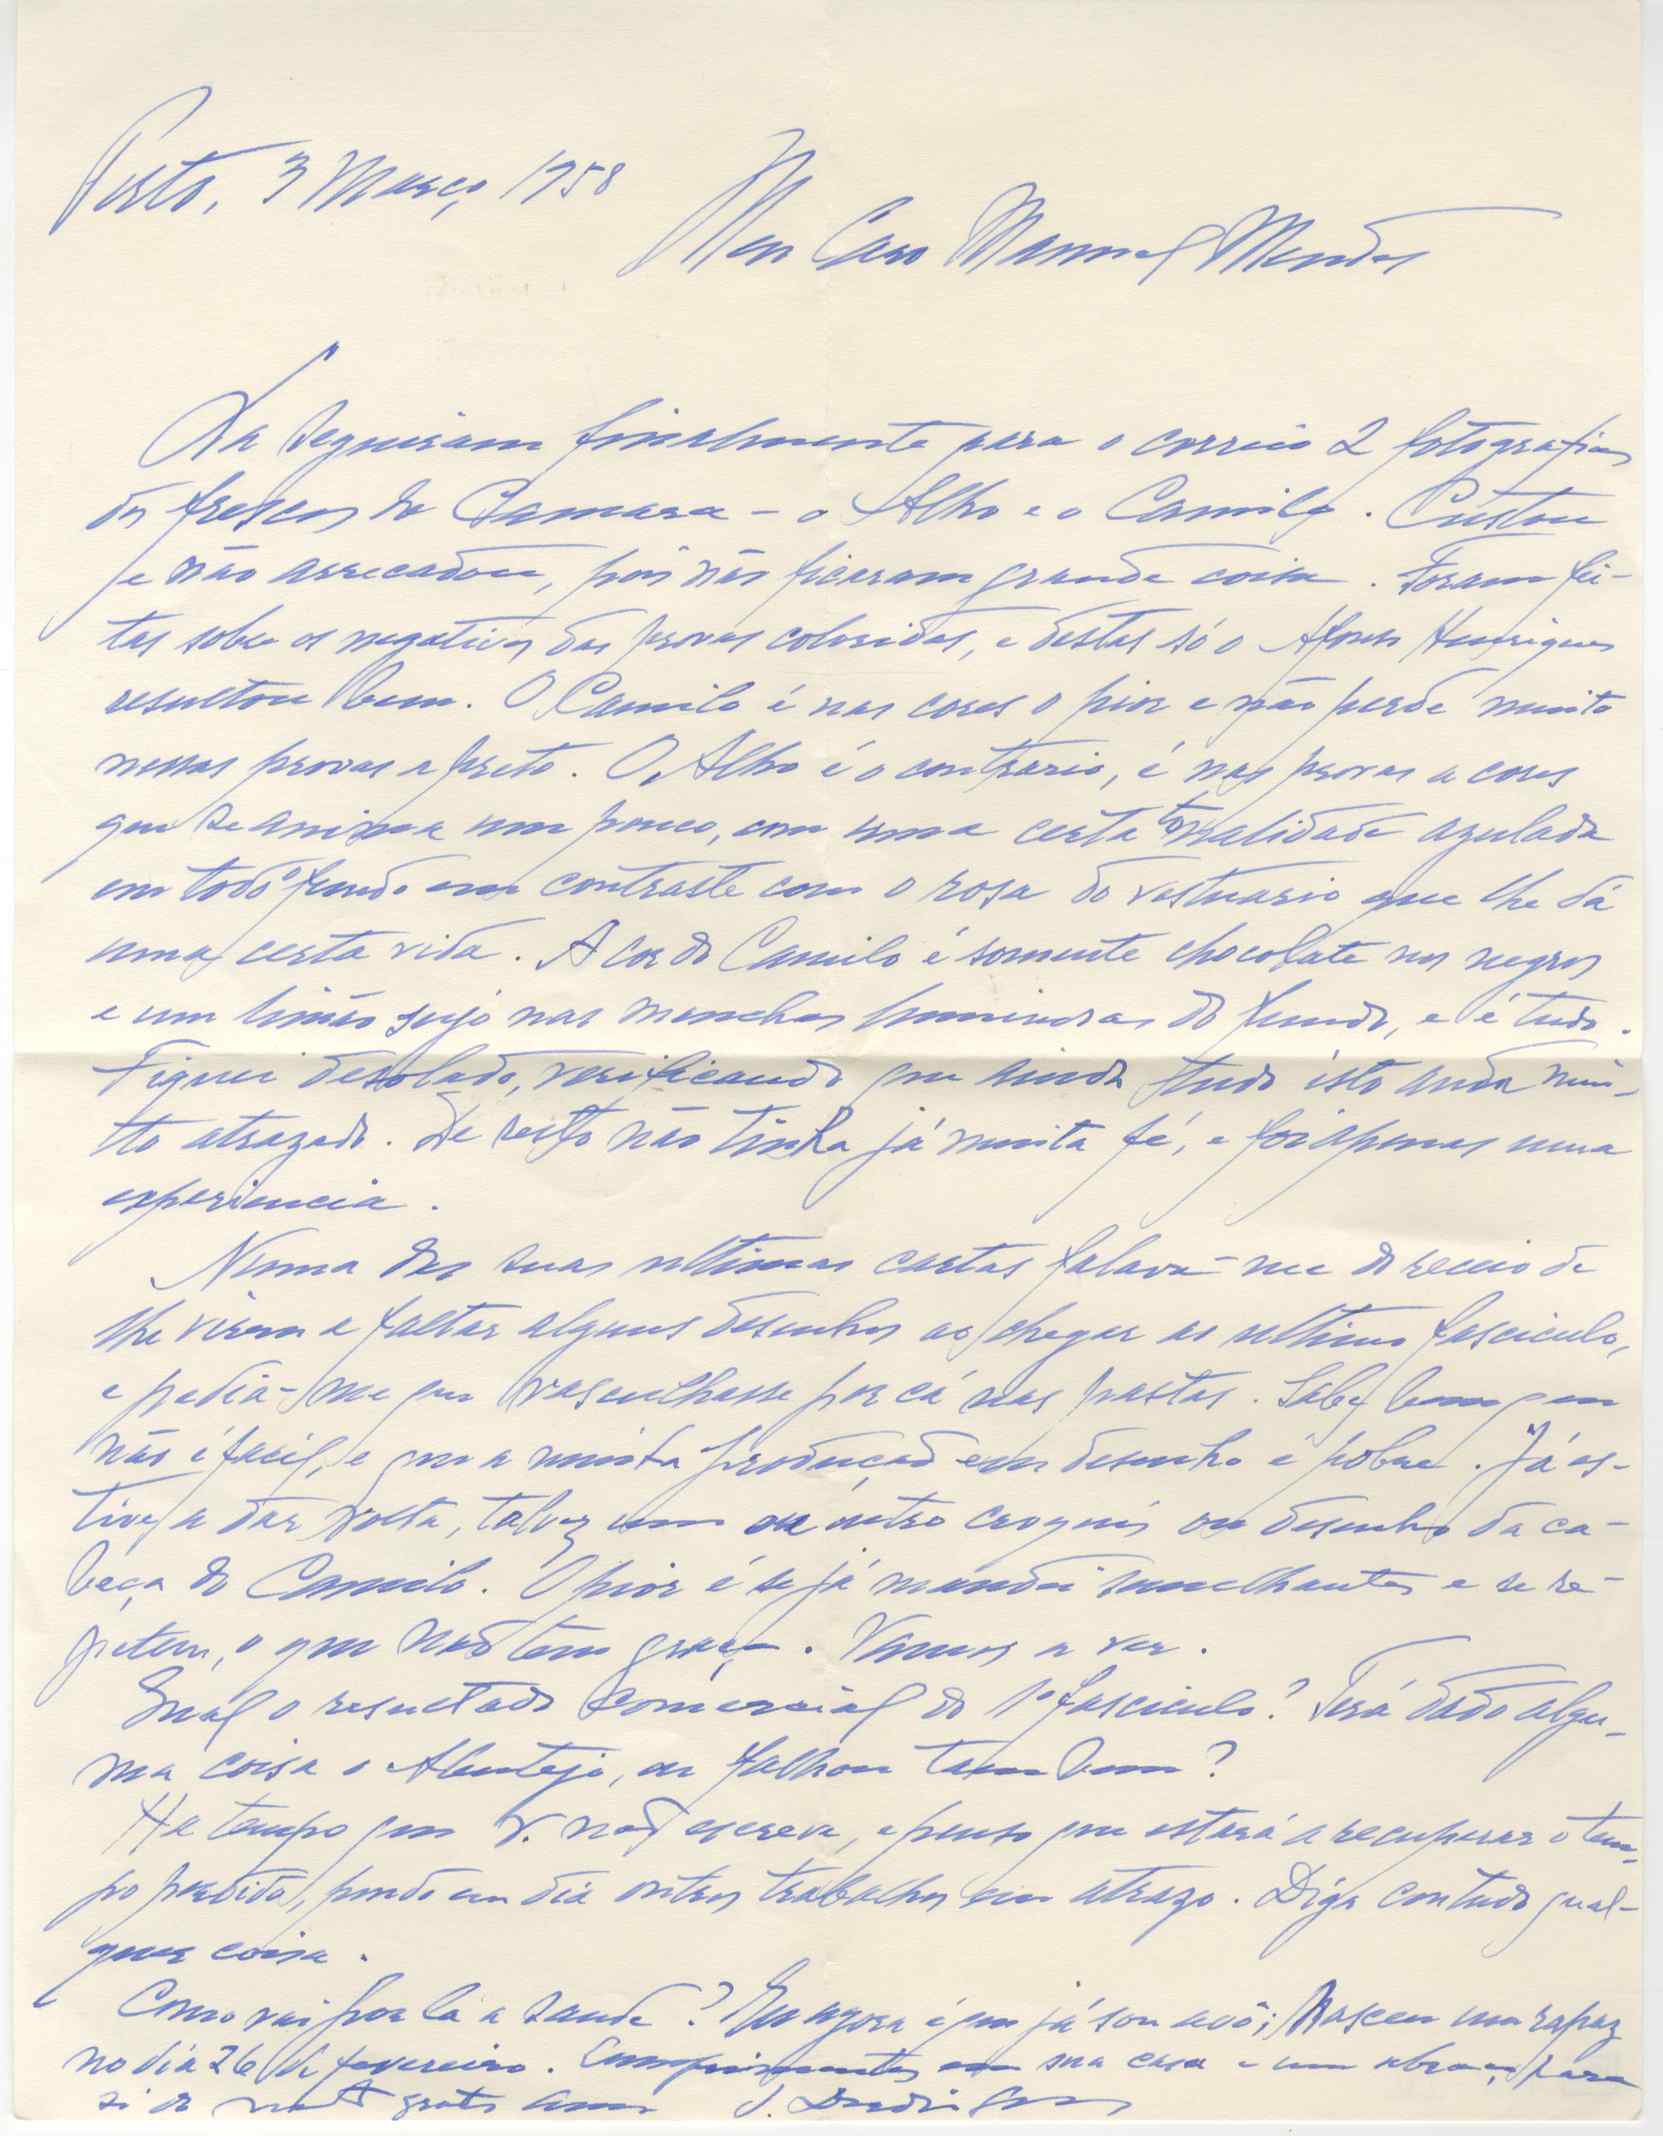 Porto, 3 Março, 1958
Meu Caro Manuel Mendes
Já seguiram finalmente para o correio 2 fotografias
dos frescos da Camara - o Alho e o Camilo. Custou
e não arrecadou, pois não ficaram grande coisa. Foram fei-
tas sobre os negativos das provas coloridas, e destas só o Afonso Henriques
resultou bem. O Camilo é nas cores o pior e não perde muito
nessas provas a preto. O Alho é o contrario, é nas provas a cores
que se anima um pouco, com uma certa tonalidade azulada
em todo fundo em contraste com o rosa do vestuario que lhe dá
uma certa vida. A cor do Camilo é somente chocolate nos negros
e um limão sujo nas manchas luminosas do fundo, e é tudo.
Fiquei desolado, verificando que ainda tudo isto anda mui-
to atrazado. De resto não tinha já muita fé, e foi apenas uma
experiencia.
Numa das suas ultimas cartas falava-me do receio de
lhe virem a faltar alguns desenhos ao chegar ao ultimo fasciculo,
e pedia-me que vasculhasse por cá nas pastas. Sabe bem que
não é facil, e que a minha produção em desenho é pobre. Já es-
tive a dar volta, talvez um ou outro croquis ou desenho da ca-
beça do Camilo. O pior é se já mandei semelhantes e se re-
petem, o que não tem graça. Vamos a ver.
Qual o resultado comercial do 1º fasciculo? Terá dado algu-
ma coisa o Alentejo, ou falhou tambem?
Ha tempo que V. não escreve, e penso que estará a recuperar o tem-
po perdido, pondo em dia outros trabalhos em atrazo. Diga contudo qual-
quer coisa.
Como vai por lá a saude? Eu agora é que já sou avô; Nasceu um rapaz
no dia 26 de fevereiro. Cumprimentos em sua casa e um abraço para
si do mto grato amo